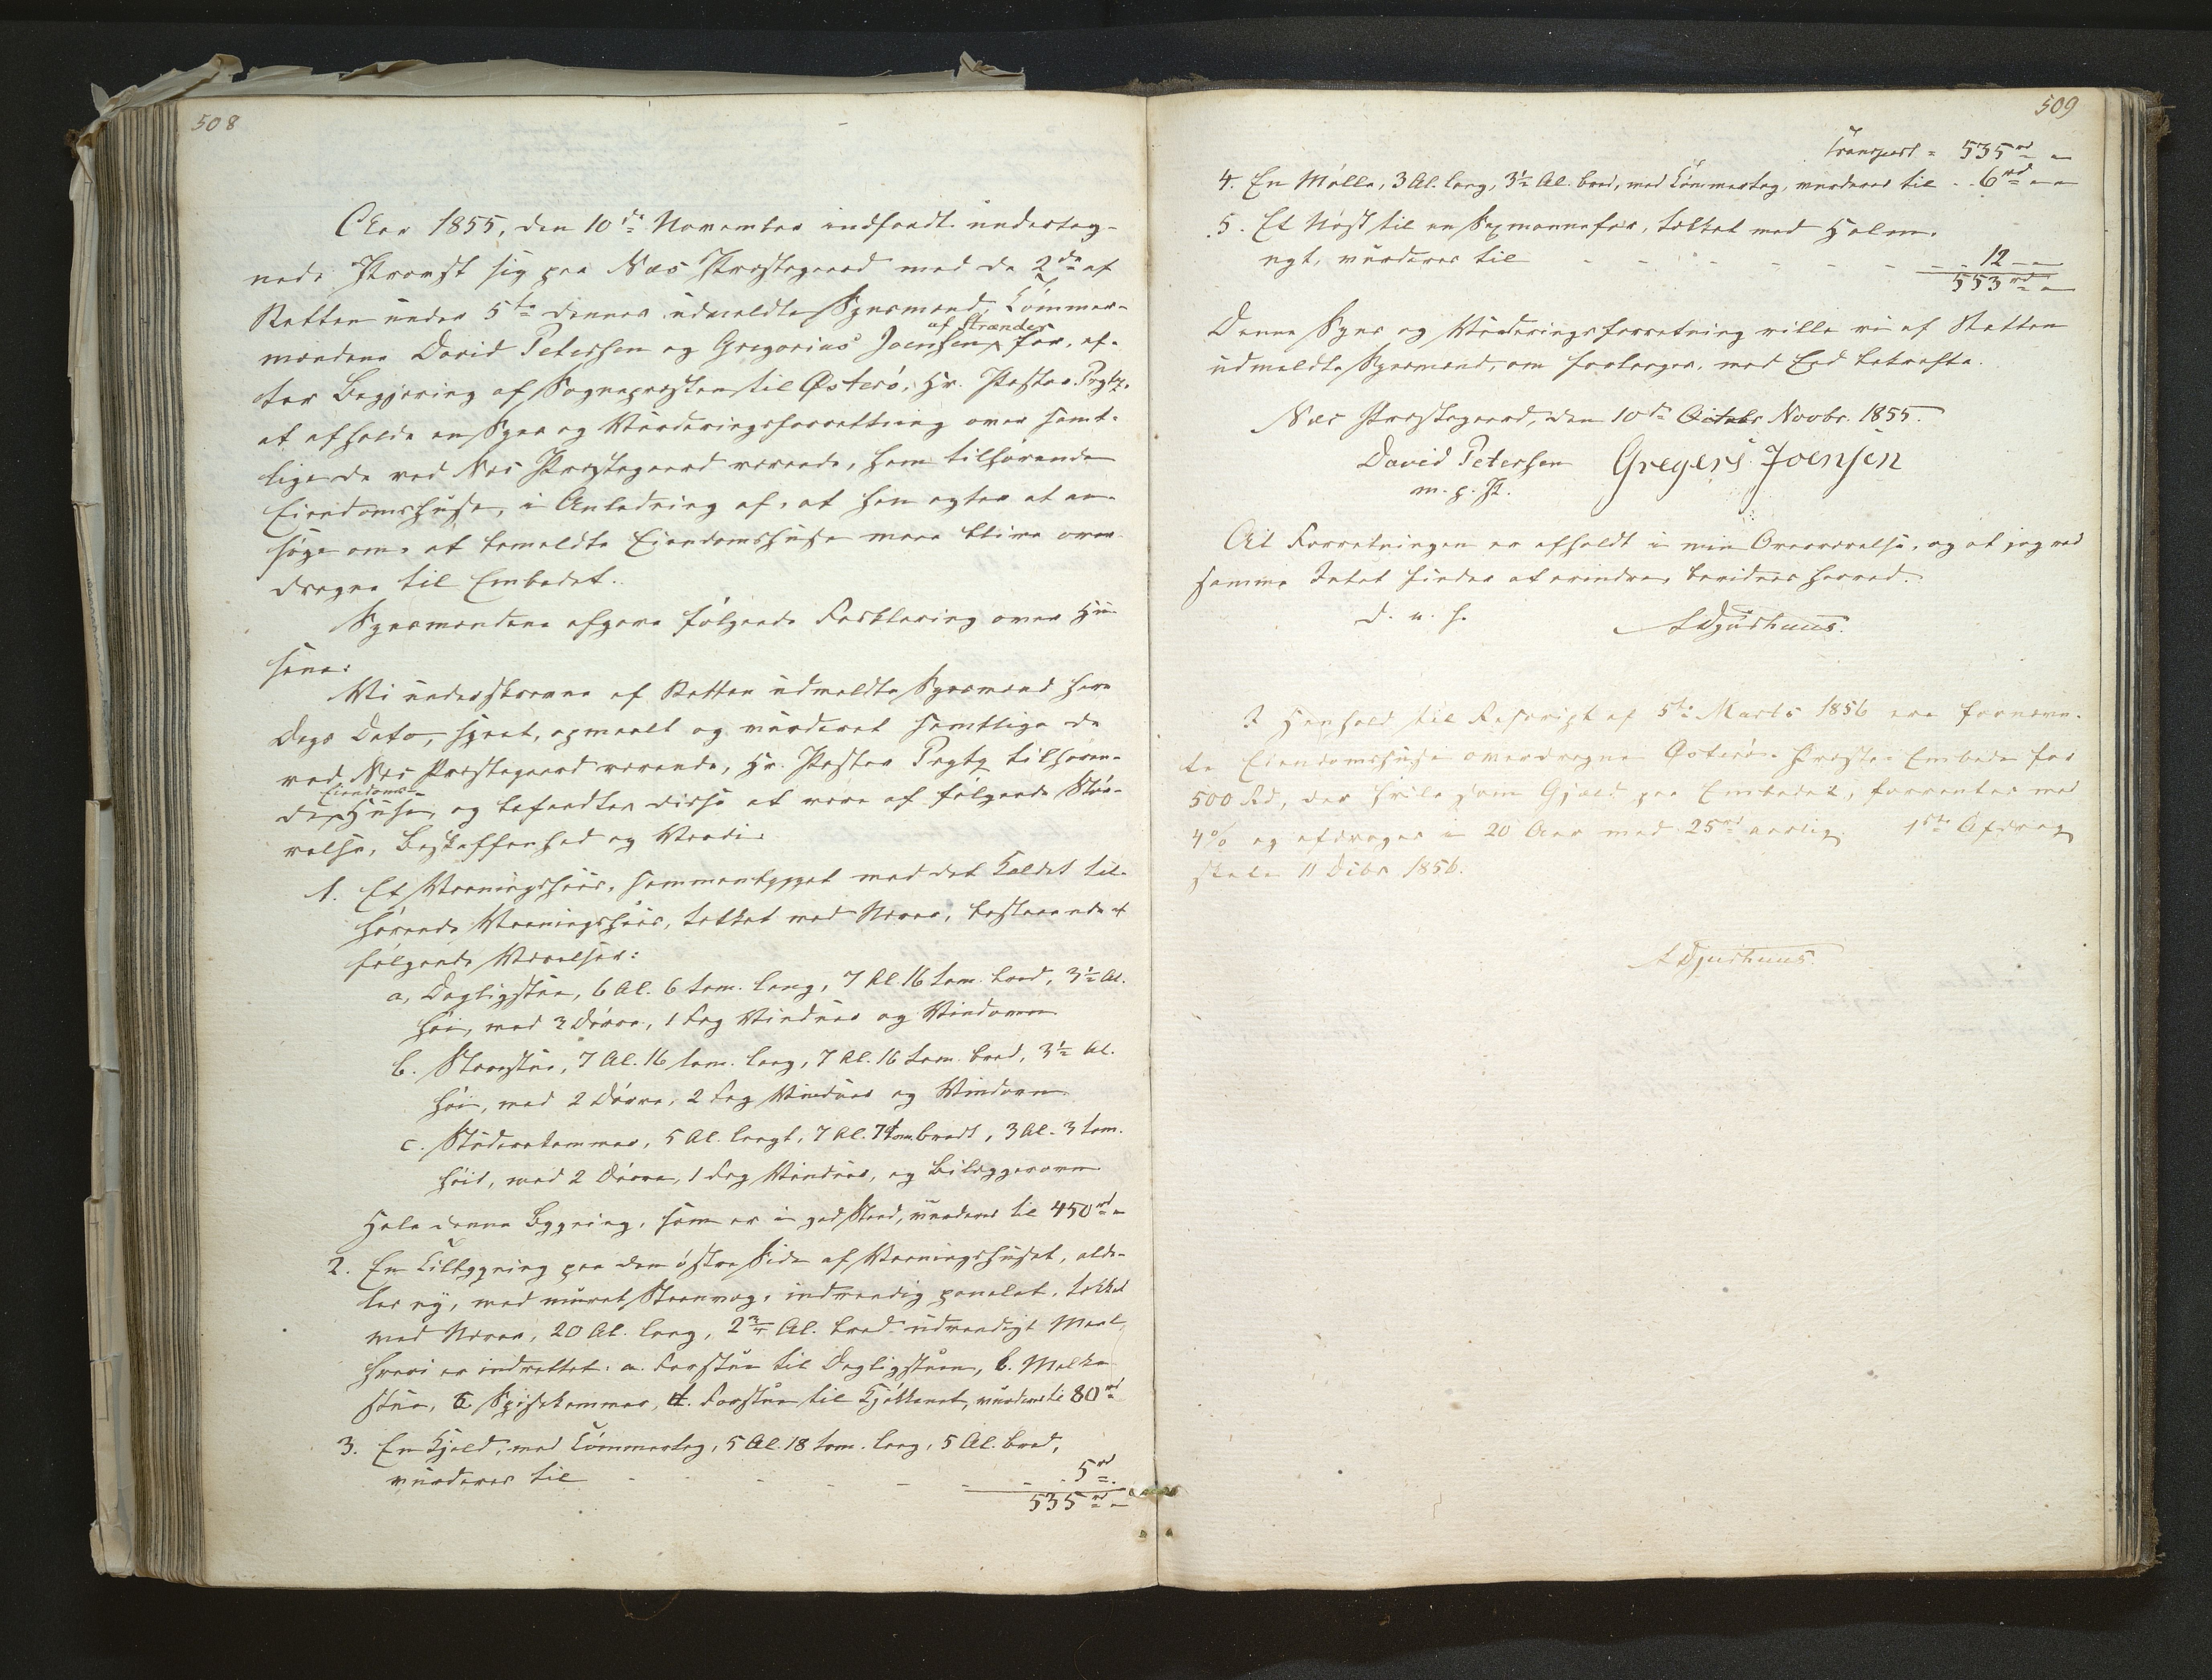 508
Aar 1855, den 10de November indfandt underteg-
nede Provst sig paa Næs Præstegaard med de 2de af
Retten under 5te dennes udmeldte Synsmænd, Tømmer-
mændene David Petersen og Gregorius Joensen, af Strænder for, ef-
ter Begjæring af Sognepræsten til Østerø, Hr. Pastor
at afholde en Syns og Vurderingsforretning over samt-
lige de ved Næs Præstegaard værende, ham tilhørende
Eiendomshuse, i Anledning af, at han agter at an-
søge om, at bemeldte Eiendomshuse maae blive over-
dragne til Embedet.
Synsmændene afgave følgende Forklaring over Hu-
sene:
Vi underskrevne af Retten udmeldte Synsmænd have
Dags Dato, synet, opmaalt og vurderet samtlige de
ved Næs Præstegaard værende, Hr. Pastor tilhøren-
de Eiendoms- Huse, og befandtes disse at være af følgende Stør-
relse, Beskaffenhed og Værdi:
1. Et Vaaningshuus, sammenbygget med det Kaldet til-
hørende Vaaningshuus, tækket med Næver, bestaaende af
følgende Værelser:
a, Dagligstue, 6 Al. 6 Tom. lang, 7 Al. 16 Tom. bred, 3½ Al.
høi, med 3 Dørre, 1 Fag Vinduer og Vindovn
b. Storstue, 7 Al. 16 Tom. lang, 7 Al. 16 Tom. bred, 3½ Al.
høi, med 2 Dørre, 2 Fag Vinduer og Vindovn
c. Studerekammer, 5 Al. langt, 7 Al. Tom. bredt, 3 Al. 3 Tom.
høit, med 2 Dørre, 1 Fag Vinduer, og Bilæggerovn
Hele denne Bygning, som er i god Stand, vurderes til 450 rd
2. En Tilbygning paa den østre Side af Vaaningshuset, alde-
les ny, med muret Steenvæg, indvendig panelet, tækket
med Næver, 20 Al. lang, 2¾ Al. bred udvendigt Maal,
hvori er indrettet: a. Forstue til Dagligstuen, b. Melke
stue, c. Spisekammer, d. Forstue til Kjøkkenet, vurderes til 80 rd
3. En Hjeld, med Tømmertag, 5 Al. 18 Tom. lang, 5 Al. bred,
vurderes til - - - - - 5 rd
535 rd
509
Transport = 535 rd
4. En Mølle, 3 Al. lang, 3½ Al. bred, med Tømmertag, vurderes til - - 6 rd
5. Et Nøst til en Sexmannefar, tækket med Halm,
nyt, vurderes til - - - - - - 12 - -
553 rd
Denne Syns og Vurderingsforretning ville vi af Retten
udmeldte Synsmænd, om forlanges, med Eed bekræfte.
Næs Præstegaard, den 10de Novbr. 1855.
David Petersen Gregers Joensen
m. p. P.
At Forretningen er afholdt i min Overværelse, og at jeg ved
samme Intet finder at erindre, bevidnes herved.
D. u. s.
A Djurhuus.
I Henhold til Rescript af 5te Marts 1856 ere fornævn-
te Eiendomshuse overdragne Østerøes Præste Embede for
500 Rd, der hvile som Gjæld paa Embedet, forrentes med
4% og afdrages i 20 Aar med 25 rd aarlig. 1ste Afdrag
skete 11 Dcbr 1856.
A Djurhuus